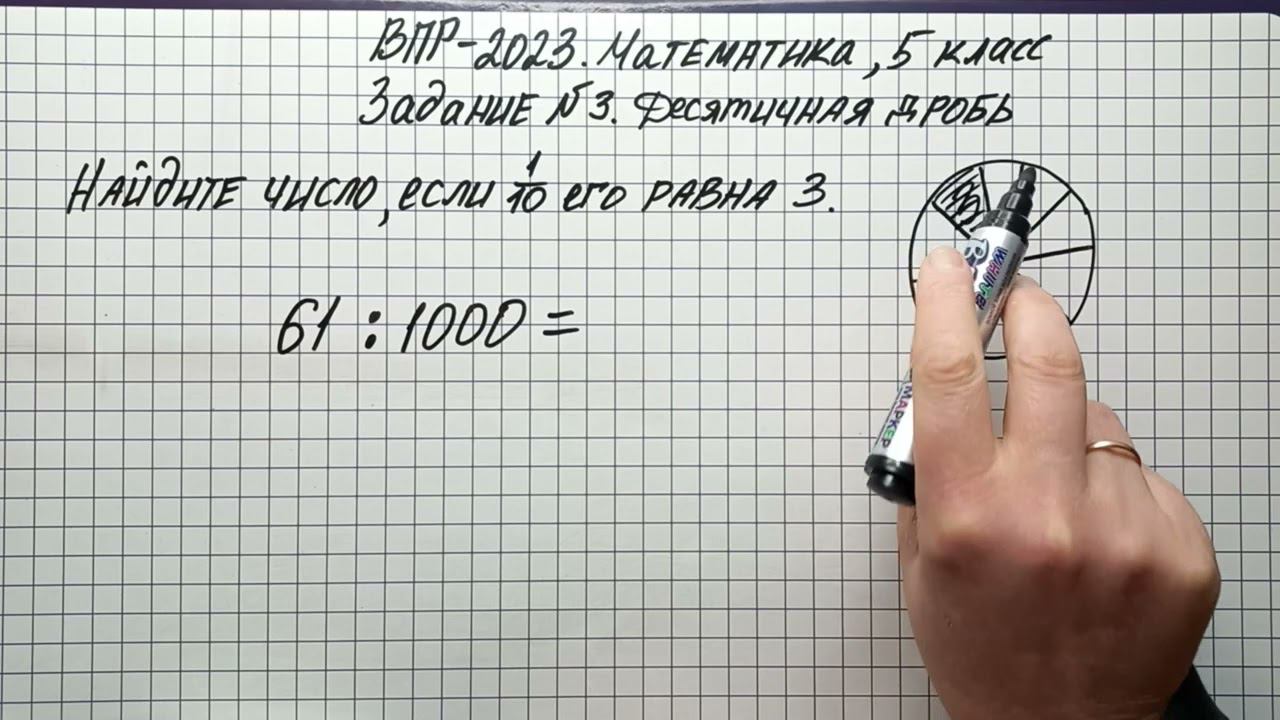 ВПР-2023. Математика, 5 класс
Задание №3. Десятичная дробь
Найдите число, если 1/10 его равна 3.
61 : 1000 =
МАРКЕР